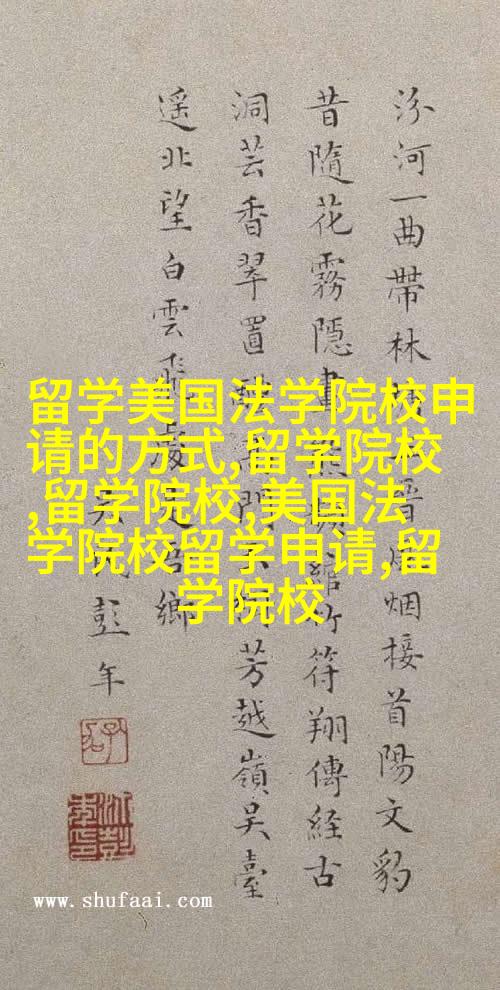 汾河一曲帶林晉烟接首陽文豹
昔隨花霧隱畫綰竹符翔傳經古
洞芸香翠置門芳越嶺吳臺
遥北望白雲飛處是鄉
彭年
留学美国法学院校申
请的方式,留学院校
,留学院校,美国法
学院校留学申请,留
学院校
www.shufaai.com